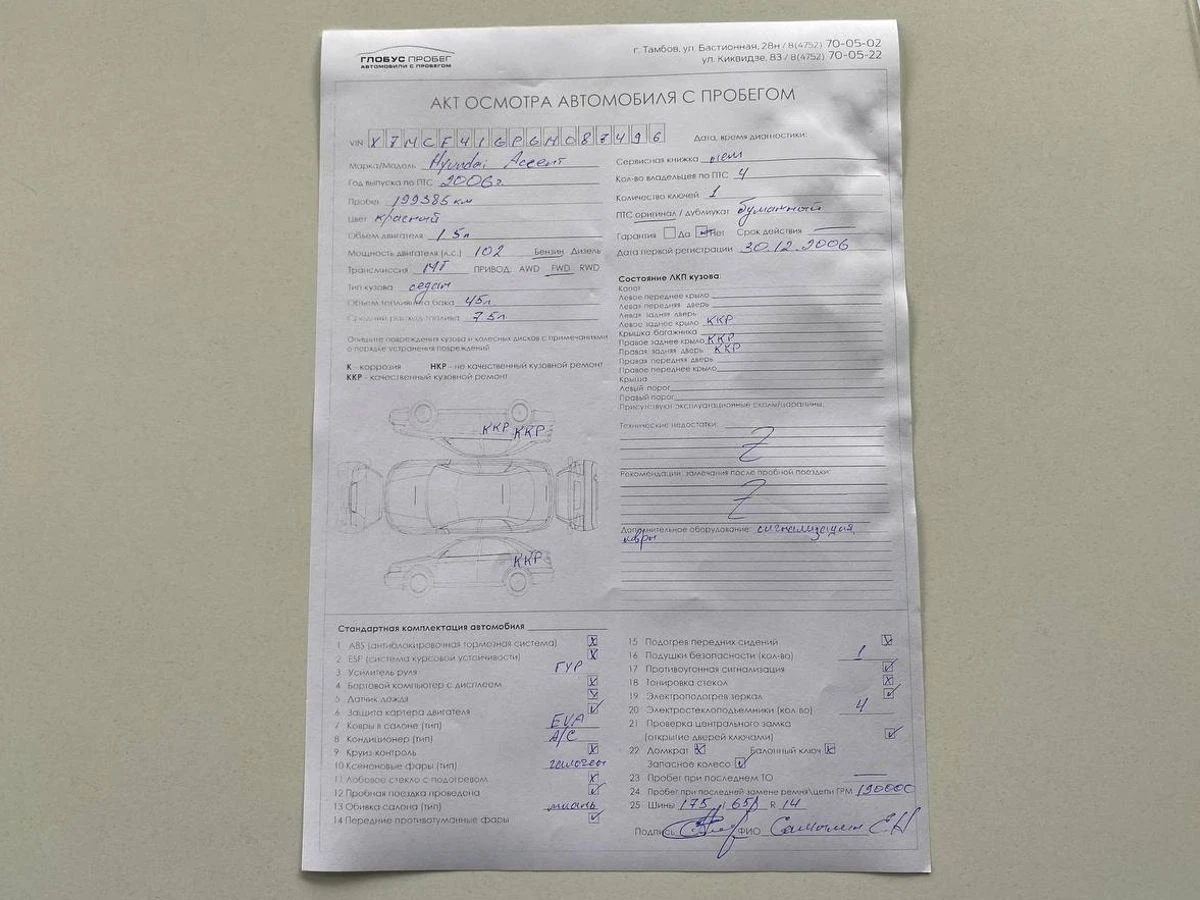 ГЛОБУС ПРОБЕГ
АВТОМОБИЛИ С ПРОБЕГОМ
г. Тамбов, ул. Бастионная, 28н / 8(4752) 70-05-02
ул. Киквидзе, 83 / 8(4752) 70-05-22
АКТ ОСМОТРА АВТОМОБИЛЯ С ПРОБЕГОМ
VIN X7MCF41GPGM087496
Марка/Модель Hyundai Accent
Год выпуска по ПТС 2006 г.
Пробег 199385 км
Цвет красный
Объем двигателя 1.5л
Мощность двигателя (л.с.) 102 Бензин Дизель
Трансмиссия МТ ПРИВОД: AWD FWD RWD
Тип кузова седан
Объем топливного бака 45л
Средний расход топлива 7.5л
Опишите повреждения кузова и колесных дисков с примечаниями
о порядке устранения повреждений
К - коррозия НКР - не качественный кузовной ремонт
ККР - качественный кузовной ремонт
ККР ККР
ККР
Дата, время диагностики:
Сервисная книжка нет
Кол-во владельцев по ПТС 4
Количество ключей 1
ПТС оригинал / дубликат бумажный
Гарантия Да Нет Срок действия
Дата первой регистрации 30.12.2006
Состояние ЛКП кузова
Капот
Левое переднее крыло
Левая передняя дверь
Левая задняя дверь
Левое заднее крыло ККР
Крышка багажника
Правое заднее крыло ККР
Правая задняя дверь ККР
Правая передняя дверь
Правое переднее крыло
Крыша
Левый порог
Правый порог
Присутствуют эксплуатационные сколы/царапины:
Технические недостатки:
Z
Рекомендации: замечания после пробной поездки:
Z
Дополнительное оборудование: сигнализация,
ковры
Стандартная комплектация автомобиля
1 ABS (антиблокировочная тормозная система)
2 ESP (система курсовой устойчивости)
3 Усилитель руля ГУР
4 Бортовой компьютер с дисплеем
5 Датчик дождя
6 Защита картера двигателя
7 Ковры в салоне (тип) EVA
8 Кондиционер (тип) A/C
9 Круиз-контроль
10 Ксеноновые фары (тип) галоген
11 Лобовое стекло с подогревом
12 Пробная поездка проведена
13 Обивка салона (тип) ткань
14 Передние противотуманные фары
15 Подогрев передних сидений
16 Подушки безопасности (кол-во) 1
17 Противоугонная сигнализация
18 Тонировка стекол
19 Электроподогрев зеркал
20 Электростеклоподъемники (кол-во) 4
21 Проверка центрального замка
(открытие дверей ключами)
22 Домкрат Балонный ключ
Запасное колесо
23 Пробег при последнем ТО
24 Пробег при последней замене ремня\цепи ГРМ 190000
25 Шины 175 / 65 R 14
Подпись ФИО Самохин Е Н